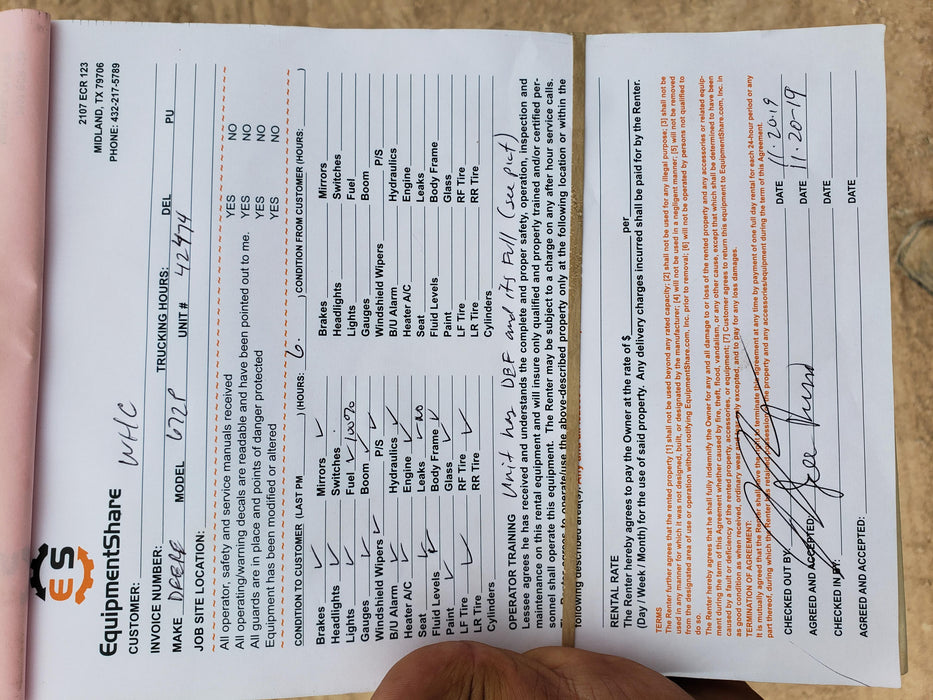 ES
EquipmentShare
2107 ECR 123
MIDLAND, TX 79706
PHONE: 432-217-5789
CUSTOMER: WHC
INVOICE NUMBER: TRUCKING HOURS: DEL PU
MAKE DEERE MODEL 672P UNIT # 42474
JOB SITE LOCATION:
All operator, safety and service manuals received YES NO
All operating/warning decals are readable and have been pointed out to me. YES NO
All guards are in place and points of danger protected YES NO
Equipment has been modified or altered YES NO
CONDITION TO CUSTOMER (LAST PM )(HOURS: 6. ) CONDITION FROM CUSTOMER (HOURS: )
Brakes ✓ Mirrors ✓ Brakes Mirrors
Headlights ✓ Switches ✓ Headlights Switches
Lights ✓ Fuel ✓ 100% Lights Fuel
Gauges ✓ Boom ✓ Gauges Boom
Windshield Wipers ✓ P/S ✓ Windshield Wipers P/S
B/U Alarm ✓ Hydraulics ✓ B/U Alarm Hydraulics
Heater A/C ✓ Engine ✓ Heater A/C Engine
Seat ✓ Leaks NO Seat Leaks
Fluid Levels ✓ Body Frame ✓ Fluid Levels Body Frame
Paint ✓ Glass ✓ Paint Glass
LF Tire ✓ RF Tire ✓ LF Tire RF Tire
LR Tire ✓ RR Tire ✓ LR Tire RR Tire
Cylinders Cylinders
OPERATOR TRAINING Unit has DEF and its Full (see pict)
Lessee agrees he has received and understands the complete and proper safety, operation, inspection and
maintenance on this rental equipment and will insure only qualified and properly trained and/or certified per-
sonnel shall operate this equipment. The Renter may be subject to a charge on any after hour service calls.
The Renter agrees to operate/use the above-described property only at the following location or within the
following described area(s):
RENTAL RATE
The Renter hereby agrees to pay the Owner at the rate of $ per
(Day / Week / Month) for the use of said property. Any delivery charges incurred shall be paid for by the Renter.
TERMS
The Renter further agrees that the rented property [1] shall not be used beyond any rated capacity; [2] shall not be used for any illegal purpose; [3] shall not be
used in any manner for which it was not designed, built, or designated by the manufacturer; [4] will not be used in a negligent manner; [5] will not be removed
from the designated area of use or operation without notifying EquipmentShare.com, Inc. prior to removal; [6] will not be operated by persons not qualified to
do so
The Renter hereby agrees that he shall fully indemnify the Owner for any and all damage to or loss of the rented property and any accessories or related equip-
ment during the term of this Agreement whether caused by fire, theft, flood, vandalism, or any other cause, except that which shall be determined to have been
caused by a fault or deficiency of the rented property, accessories, or equipment; [7] Customer agrees to return this equipment to EquipmentShare.com, Inc. in
as good condition as when received, ordinary wear and tear only excepted, and to pay for any loss damages.
TERMINATION OF AGREEMENT:
It is mutually agreed that the Renter shall have the right to terminate this agreement at any time by payment of one full day rental for each 24-hour period or any
part thereof, during which the Renter has retained possession of the property and any accessories/equipment during the term of this Agreement.
CHECKED OUT BY: DATE 11.20.19
AGREED AND ACCEPTED: DATE 11-20-19
CHECKED IN BY: DATE
AGREED AND ACCEPTED: DATE